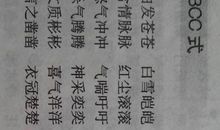 BCC 式
白发苍苍 白雪皑皑
含情脉脉 红尘滚滚
怒气冲冲 气喘吁吁
杀气腾腾 神采奕奕
文质彬彬 喜气洋洋
言之凿凿 衣冠楚楚